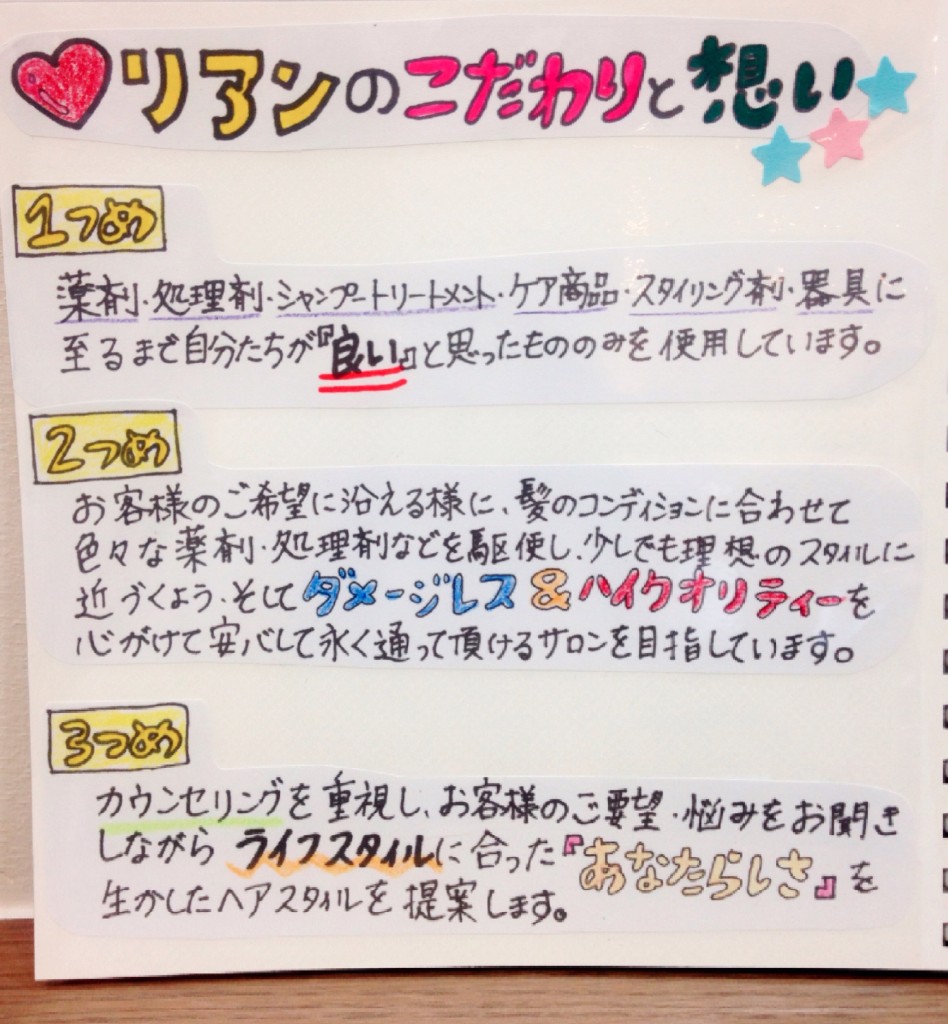 リアンのこだわりと想い
1つめ
薬剤・処理剤・シャンプートリートメント・ケア商品・スタイリング剤・器具に
至るまで自分たちが『良い』と思ったもののみを使用しています。
2つめ
お客様のご希望に沿える様に、髪のコンディションに合わせて
色々な薬剤・処理剤などを駆使し、少しでも理想のスタイルに
近づくよう、そしてダメージレス&ハイクオリティーを
心がけて安心して永く通って頂けるサロンを目指しています。
3つめ
カウンセリングを重視し、お客様のご要望・悩みをお聞き
しながらライフスタイルに合った『あなたらしさ』を
生かしたヘアスタイルを提案します。